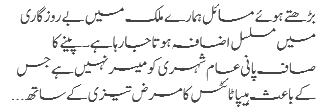 بڑھتے ہوئے مسائل ہمارے ملک میں بے روزگاری
میں مسلسل اضافہ ہوتا جا رہا ہے۔ پینے کا
صاف پانی عام شہری کو میسر نہیں ہے جس
کے باعث ہیپاٹائٹس کا مرض تیزی کے ساتھ...